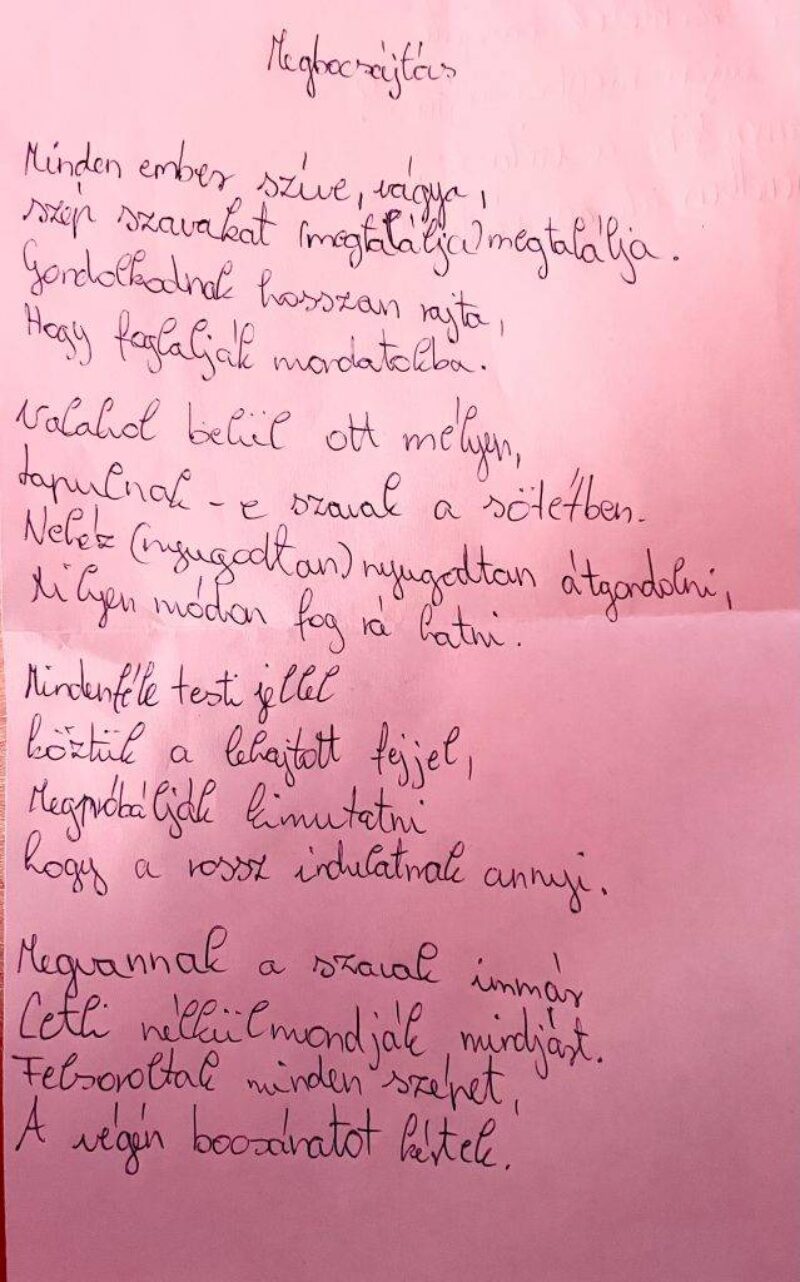 Megbocsájtás
Minden ember szíve, vágya,
szép szavakat (megtalálja) megtalálja.
Gondolkodnak hosszan rajta,
Hogy foglalják mondatokba.
Valahol belül ott mélyen,
Lapulnak - e szavak a sötétben.
Nehéz (nyugodtan) nyugodtan átgondolni,
Milyen módon fog rá hatni.
Mindenféle testi jellel
köztük a lehajtott fejjel,
Megpróbálják kimutatni
hogy a rossz indulatnak annyi.
Megvannak a szavak immár
Cetli nélkül mondják mindjárt.
Felsoroltak minden szépet,
A végén bocsánatot kértek.